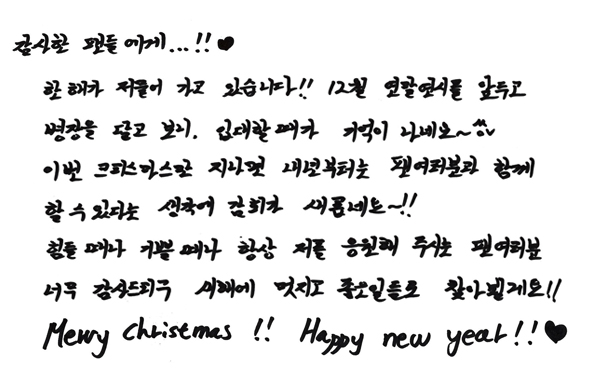 감사한 팬들에게...!!♥
한 해가 저물어 가고 있습니다!! 12월 연말연시를 앞두고
병장을 달고 보니, 입대할때가 기억이 나네요~^^
이번 크리스마스만 지나면 내년부터는 팬여러분과 함께
할 수 있다는 생각에 감회가 새롭네요~!!
힘들 때나 기쁠 때나 항상 저를 응원해 주시는 팬여러분
너무 감사드리구 새해에 멋지고 좋은일들로 찾아뵐게요!!
Merry christmas !! Happy new year!!♥